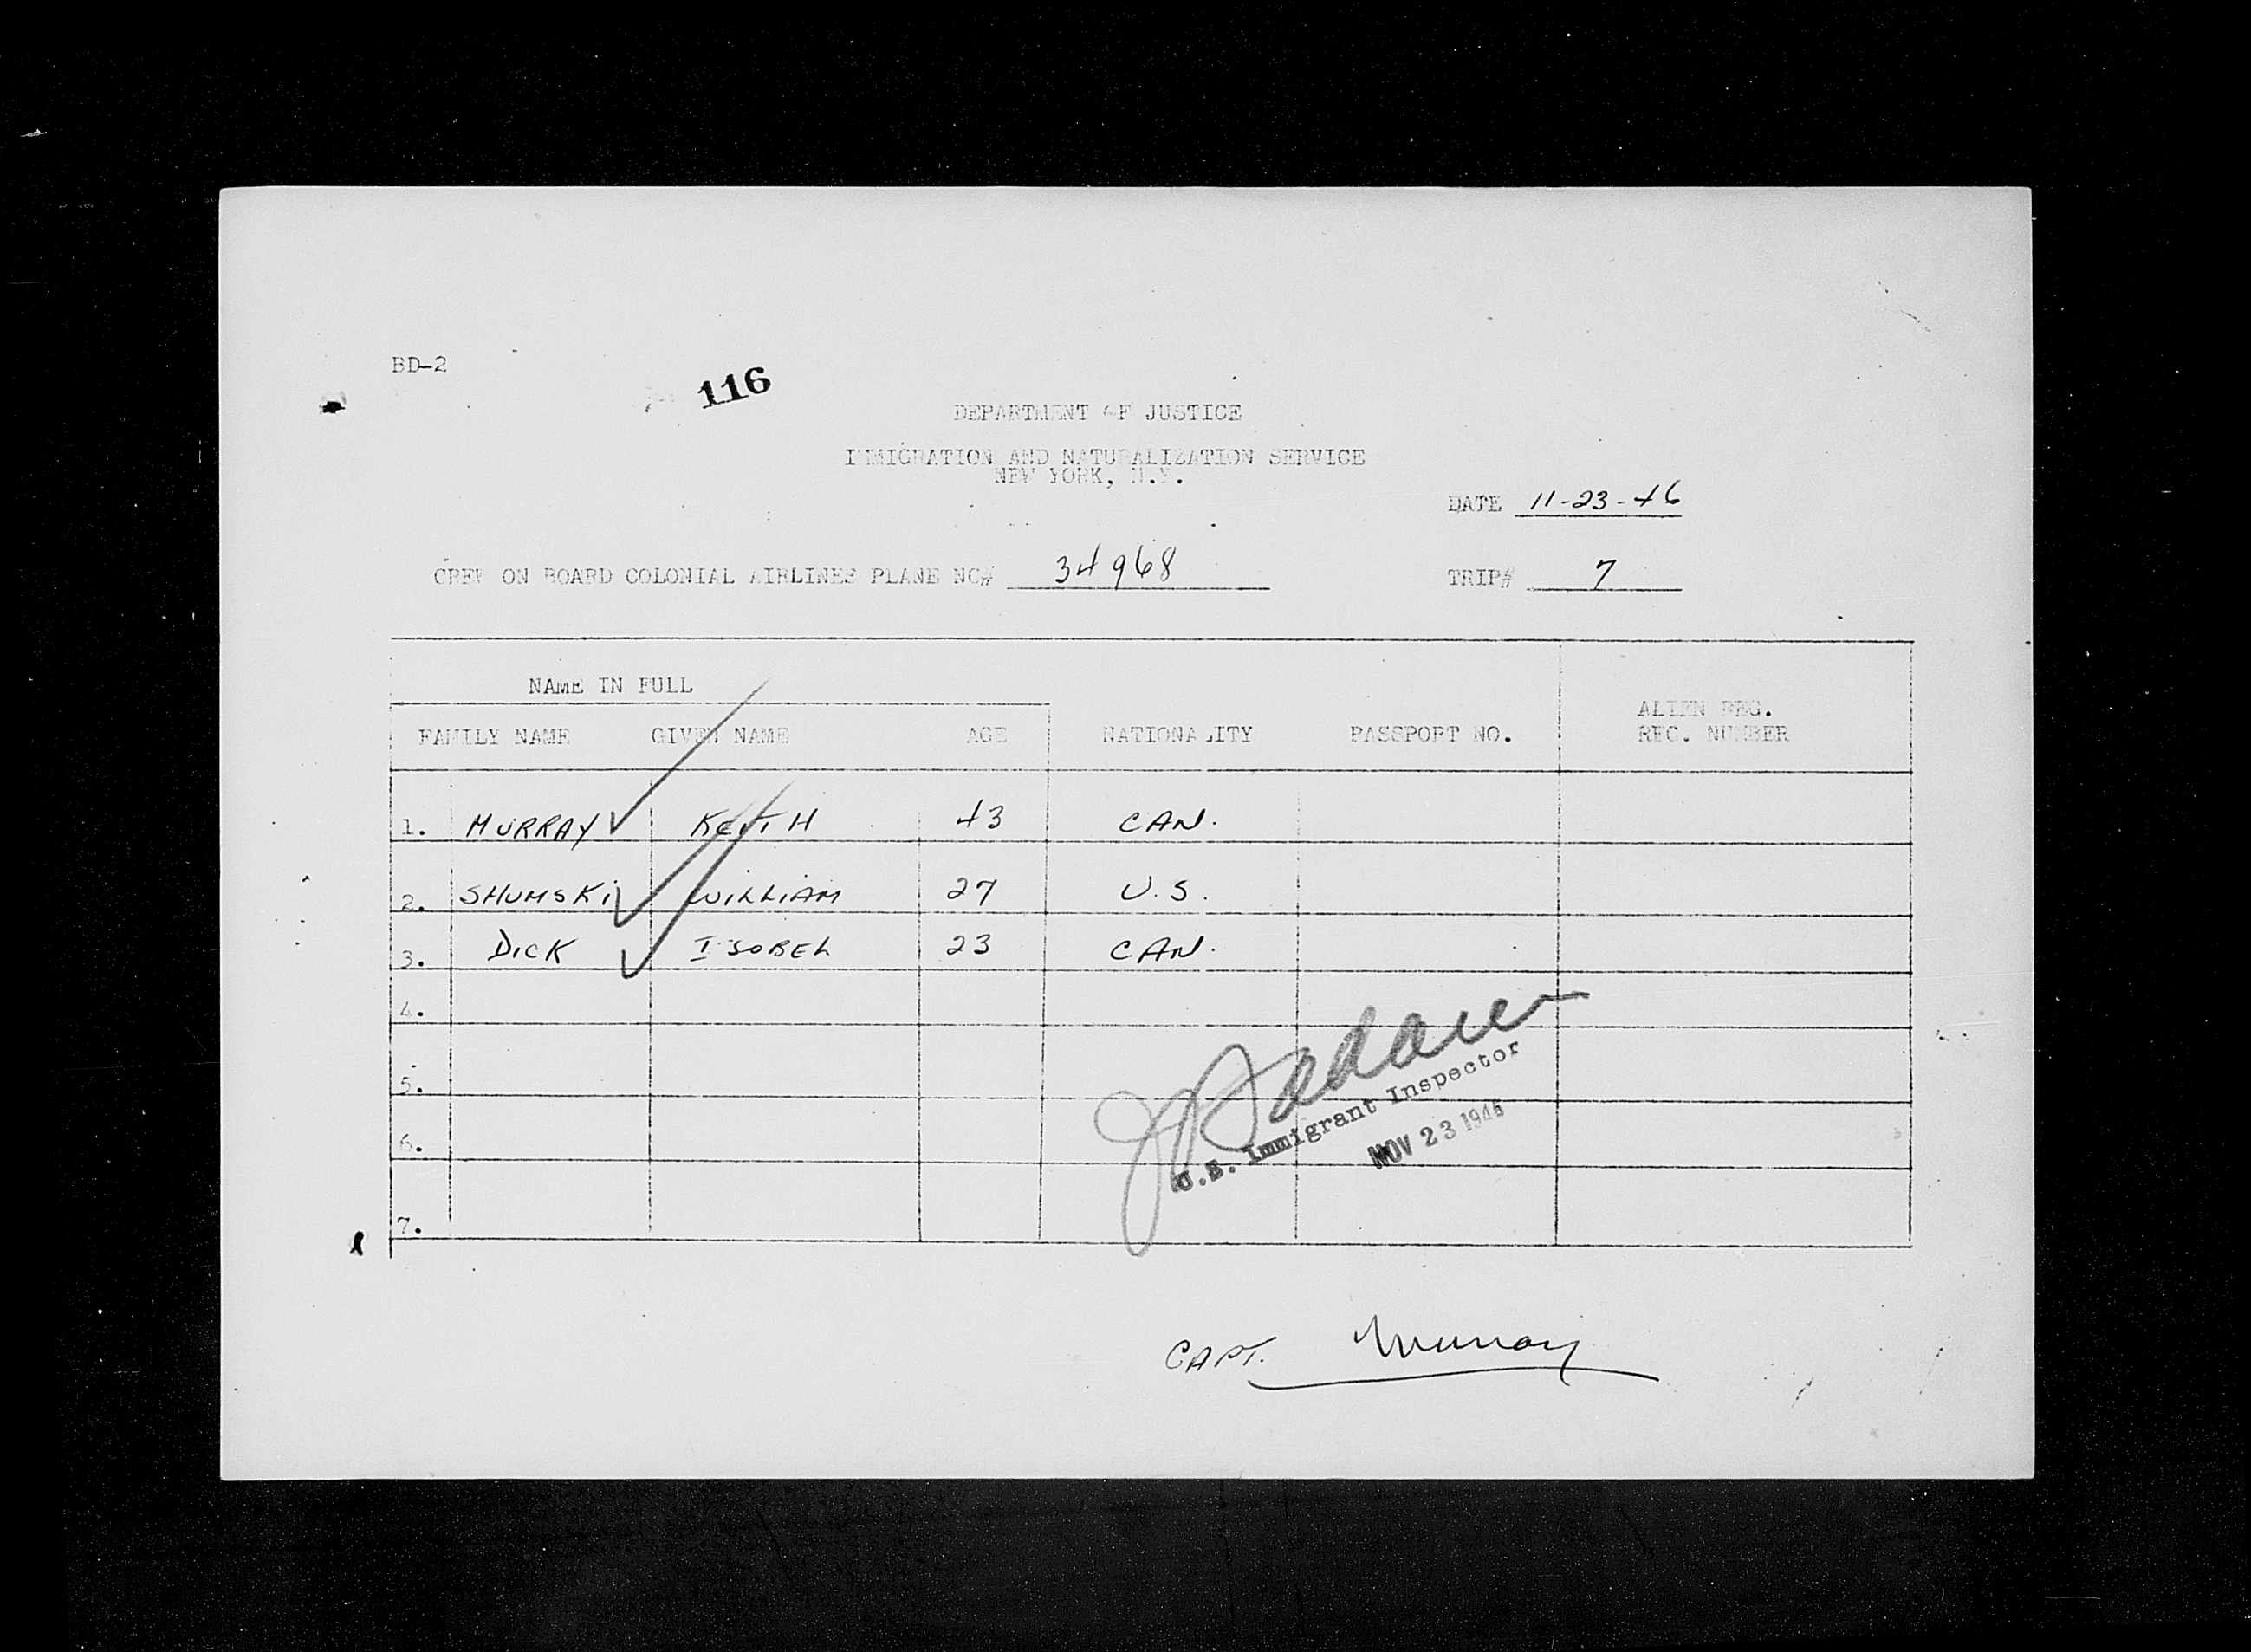 BD-2
116
DEPARTMENT OF JUSTICE
IMMIGRATION AND NATURALIZATION SERVICE
NEW YORK, N.Y.
DATE 11-23-46
CREW ON BOARD COLONIAL AIRLINES PLANE NC# 34968 TRIP# 7
NAME IN FULL
FAMILY NAME GIVEN NAME AGE NATIONALITY PASSPORT NO. ALIEN REG. REC. NUMBER
1. MURRAY KEITH 43 CAN.
2. SHUMSKI WILLIAM 27 U.S.
3. DICK ISOBEL 23 CAN.
4.
5.
6.
7.
U.S. Immigrant Inspector
NOV 23 1946
CAPT. Murray